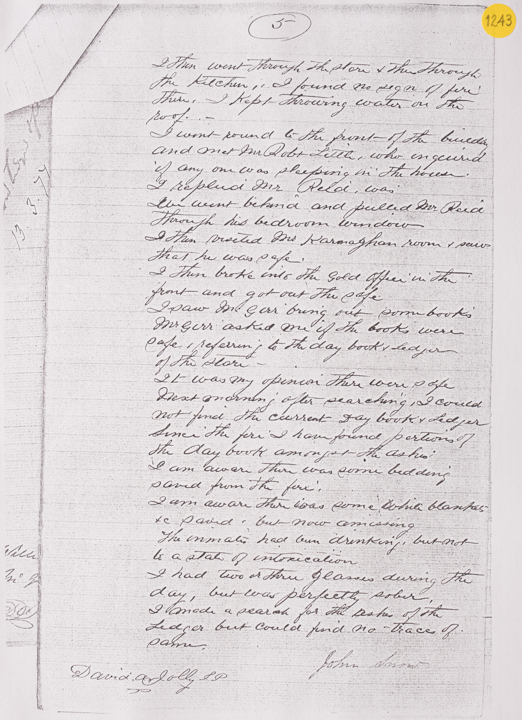 5
1243
I then went through the store & then through
the Kitchen, I found no sign of fire
there. I Kept throwing water on the
roof. -
I went round to the front of the building
and met Mr Robt Little, who inquired
if any one was sleeping in the house.
I replied Mr Reid, was
We went behind and pulled Mr Reid
through his bedroom window
I then visited Mrs Karnaghan room & saw
that he was safe.
I then broke into the Gold Office in the
front and got out the safe
I saw Mr Gerr bring out some books
Mr Gerr asked me if the books were
safe, referring to the day book & Ledger
of the store -
It was my opinion there were safe
Next morning after searching, I could
not find the current Day book & Ledger
Since the fire I have found portions of
the day book amongst the ashes
I am aware there was some bedding
saved from the fire.
I am aware there was some White blankets
&c saved, but now amissing
The inmates had been drinking, but not
to a state of intoxication
I had two or three Glasses during the
day, but was perfectly sober,
I made a search for the ashes of the
Ledger but could find no traces of
same.
John Snow
David A Jolly JP
13.3.77